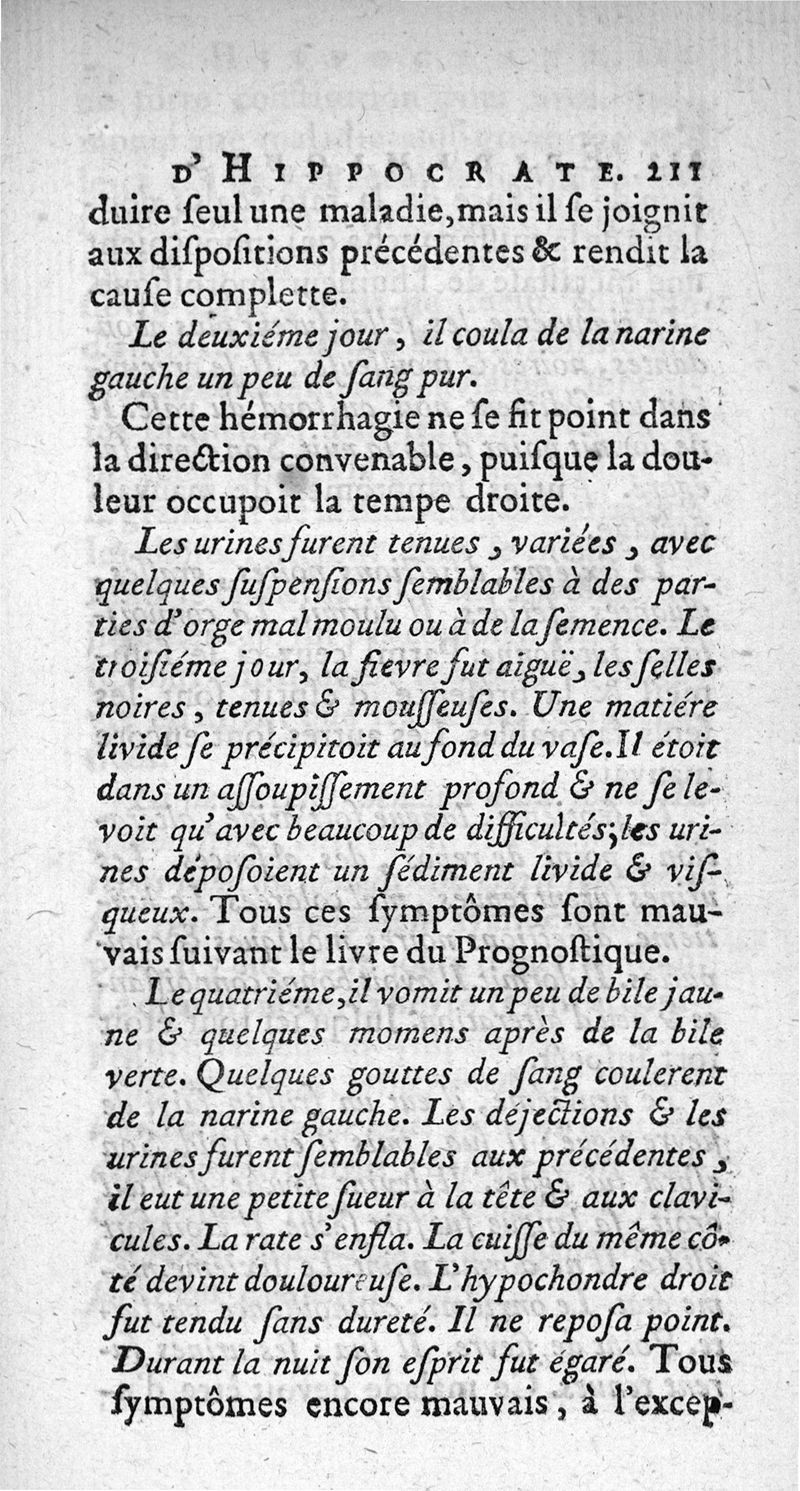 D' HIPPOCRATE. 211
duire ſeul une maladie, mais il ſe joignit
aux diſpoſitions précédentes & rendit la
cauſe complette.
Le deuxiéme jour, il coula de la narine
gauche un peu de ſang pur.
Cette hémorrhagie ne ſe fit point dans
la direction convenable, puiſque la dou-
leur occupoit la tempe droite.
Les urines furent tenues, variées, avec
quelques ſuſpenſions ſemblables à des par-
ties d'orge mal moulu ou à de la ſemence. Le
troiſiéme jour, la fievre fut aiguë, les ſelles
noires, tenues & mouſſeuſes. Une matiére
livide ſe précipitoit au fond du vaſe. Il étoit
dans un aſſoupiſſement profond & ne ſe le-
voit qu'avec beaucoup de difficultés; les uri-
nes dépoſoient un ſédiment livide & viſ-
queux. Tous ces ſymptômes ſont mau-
vais ſuivant le livre du Prognoſtique.
Le quatriéme, il vomit un peu de bile jau-
ne & quelques momens après de la bile
verte. Quelques gouttes de ſang coulerent
de la narine gauche. Les déjections & les
urines furent ſemblables aux précédentes,
il eut une petite ſueur à la tête & aux clavi-
cules. La rate s'enfla. La cuiſſe du même cô-
té devint douloureuſe. L'hypochondre droit
fut tendu ſans dureté. Il ne repoſa point.
Durant la nuit ſon eſprit fut égaré. Tous
ſymptômes encore mauvais, à l'excep-